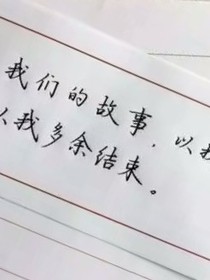 我们的故事，以我
以我多余结束。